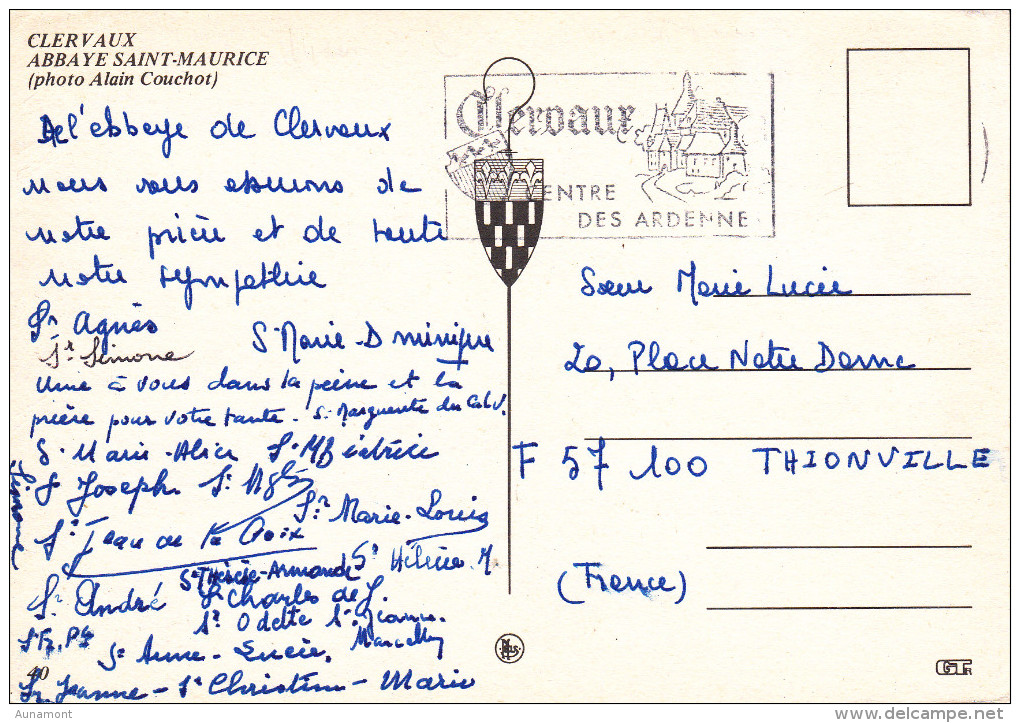 CLERVAUX
ABBAYE SAINT-MAURICE
(photo Alain Couchot)
Clervaux
CENTRE
DES ARDENNE
De l'abbaye de Clervaux
nous vous assurons de
notre prière et de toute
notre sympathie
Sr Agnès
Sr Simone
S. Marie-Dminique
Unie à vous dans la peine et la
prière pour votre tante. S. Marguerite du
S. Marie-Alice S. M Béatrice
Simone
Sr Joseph. Sr
Sr Marie-Louis
Sr Jean de la Croix
Sr Hélène M
Sr Thérèse-Armande
Sr André
Sr Charles de J.
Sr Odette Sr Jeanne.
Sr Anne-Lucie.
40
Sr Jeanne - Sr Christine-Marie
Sœur Marie Lucie
20, Place Notre Dame
F 57 100 THIONVILLE
(France)
Nels
GTR
Aunamont
delcampe.net